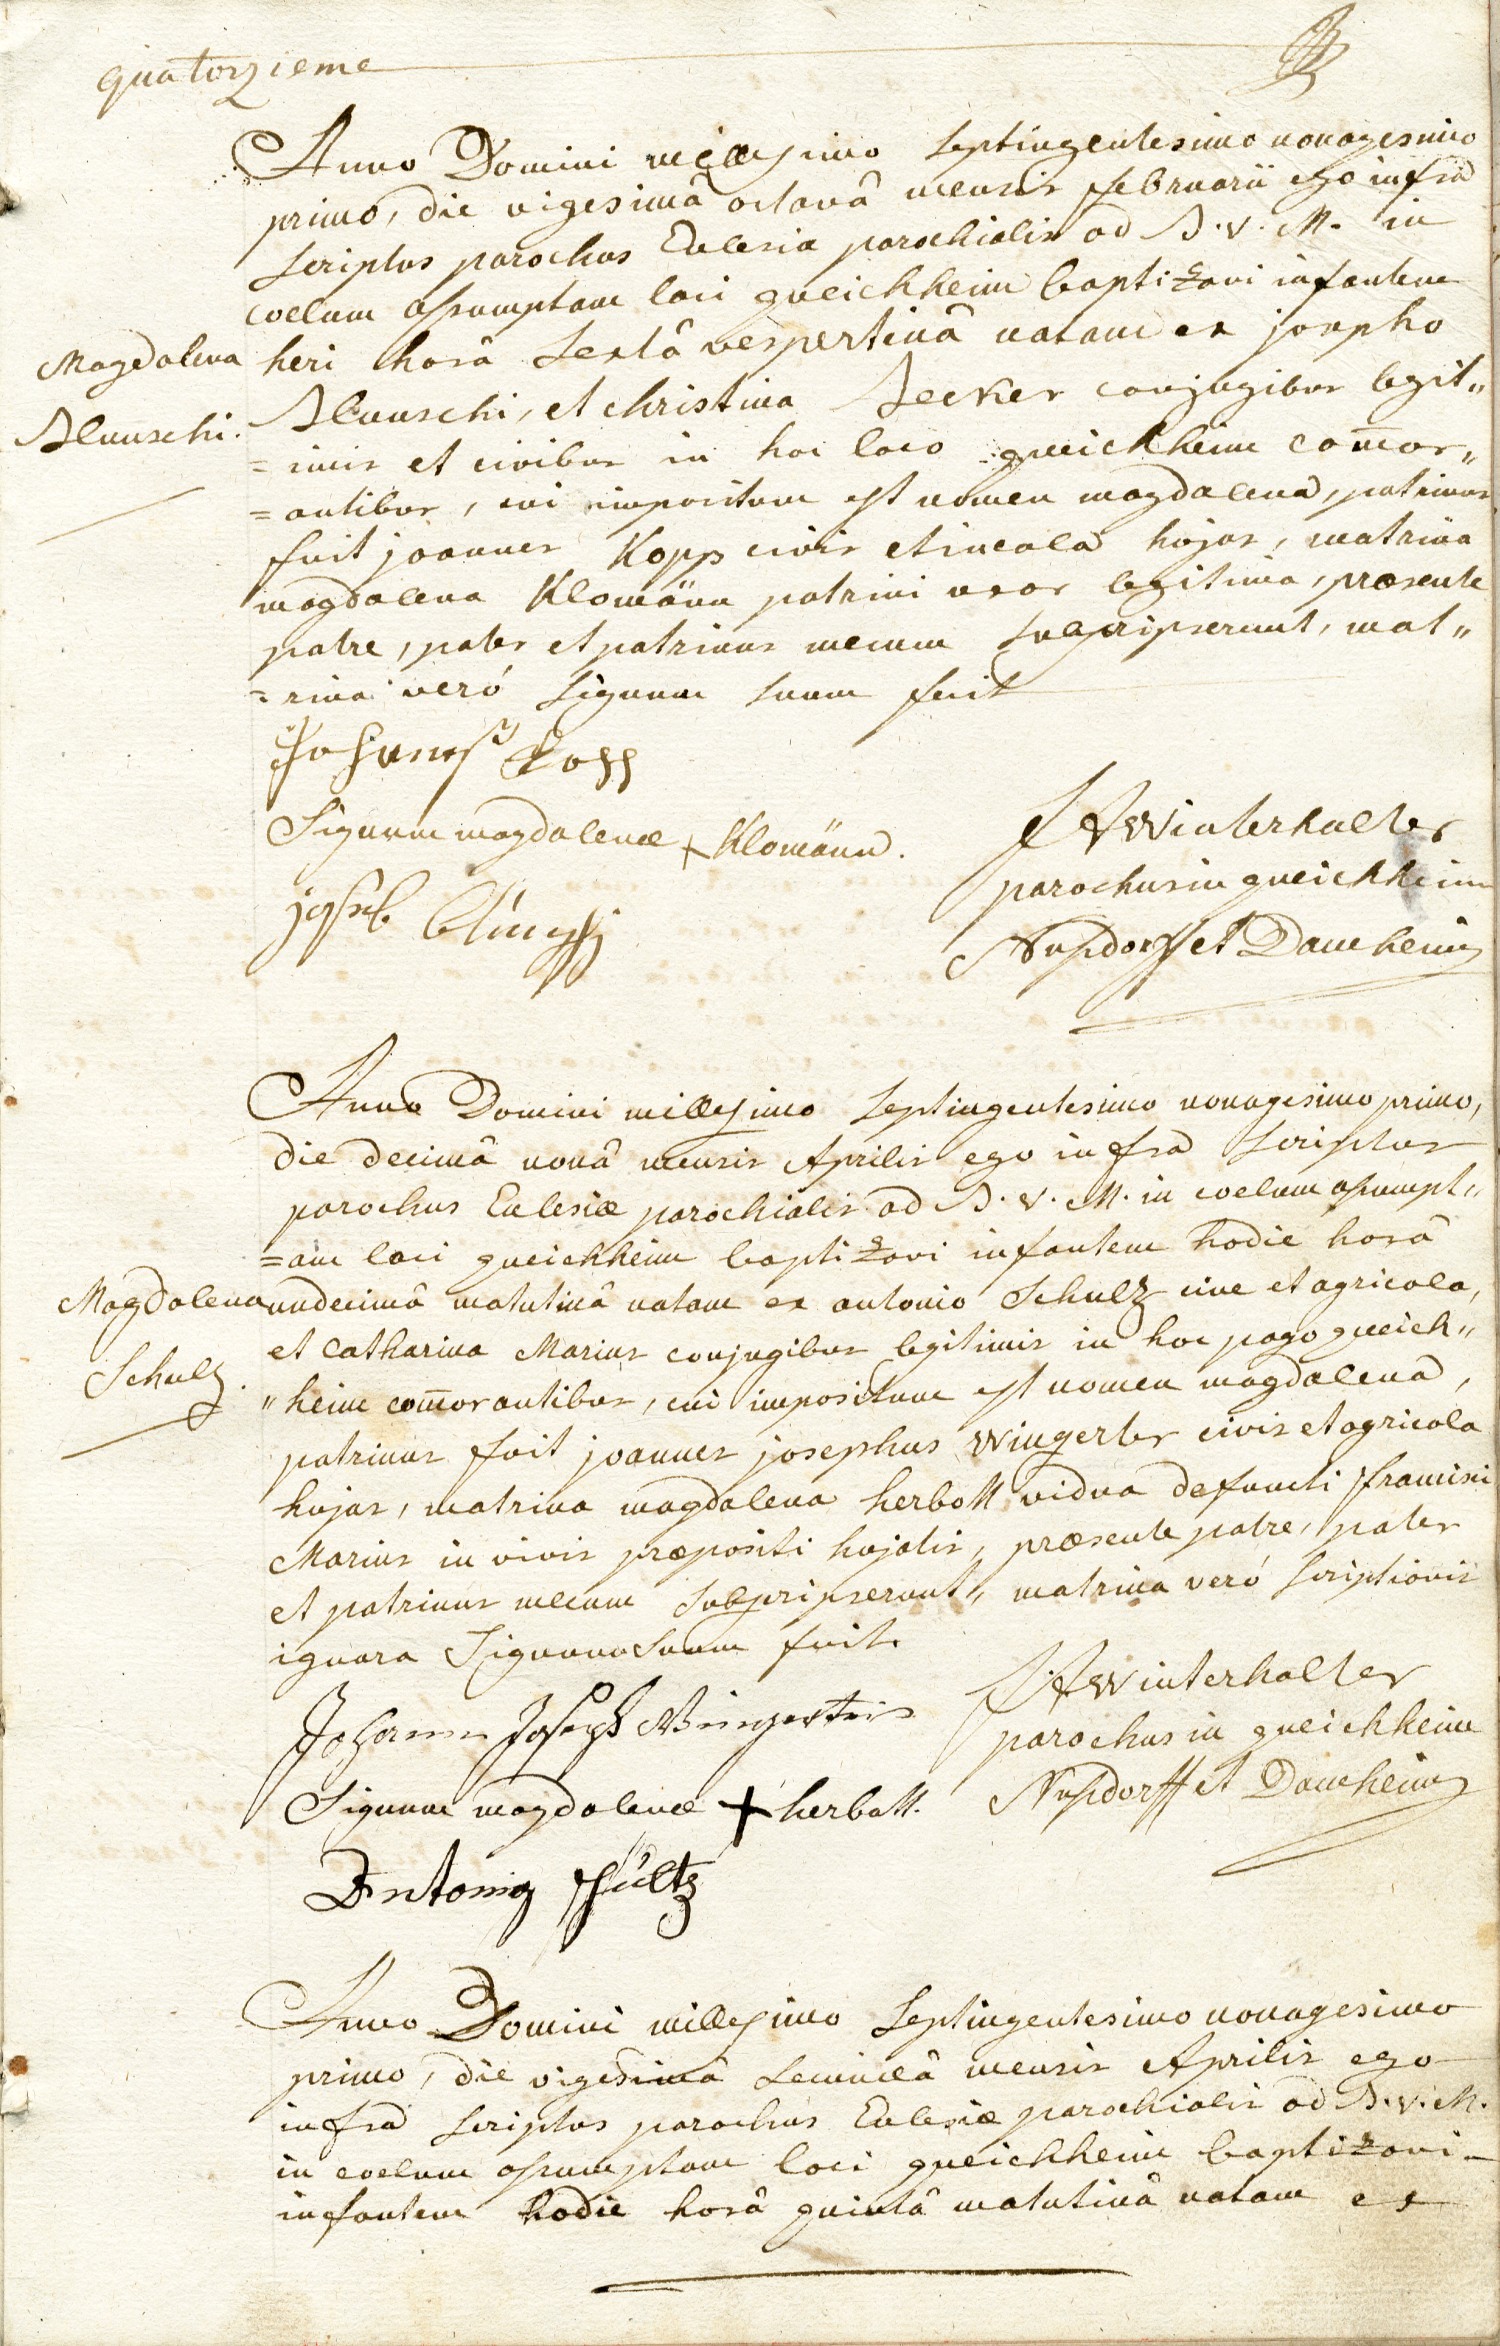 quatorzieme
Anno Domini millesimo septingentesimo nonagesimo
primo, die vigesimâ octavâ mensis februarii ego infrà
scriptus parochus Ecclesiæ parochialis ad B. V. M. in
coelum assumptam loci queichheim baptizavi infantem
heri horâ sextâ vespertinâ natam ex josepho
Magdalena
Blunschi.
Blunschi, et christina Becker conjugibus legit„
=imis et civibus in hoc loco queichheim com̄or„
=antibus, cui impositum est nomen magdalena, patrinus
fuit joannes Kopp civis et incola hujas, matrina
magdalena Klomänn patrini uxor legitima, præsente
patre, pater et patrinus mecum subscripserunt, mat„
=rina veró signum suum fecit
Johannes Kopp
Signum magdalenæ + Klomänn.
joseb blunschi
JAWinterhalter
parochus in queichheim
Nusdorff et Damheim
Anno Domini millesimo septingentesimo nonagesimo primo,
die decimâ nonâ mensis Aprilis ego infrà scriptus
parochus Ecclesiæ parochialis ad B. V. M. in coelum assumpt„
=am loci queichheim baptizavi infantem hodie horâ
Magdalena
Schulz.
undecimâ matutinâ natam ex antonio Schulz cive et agricola,
et Catharina Marius conjugibus legitimis in hoc pago queich„
„heim com̄orantibus, cui impositum est nomen magdalena,
patrinus fuit joannes josephus Wingerter civis et agricola
hujas, matrina magdalena herbott vidua defuncti francisci
Marius in vivis præpositi hujatis, præsente patre, pater
et patrinus mecum subscripserunt, matrina veró scriptionis
ignara Signum suum fecit.
Johann Joseph Wingerter
Signum magdalenæ + herbott.
Antonig schultz
JAWinterhalter
parochus in queichheim
Nusdorff et Damheim
Anno Domini millesimo septingentesimo nonagesimo
primo, die vigesimâ secundâ mensis Aprilis ego
infrà scriptus parochus Ecclesiæ parochialis ad B. V. M.
in coelum assumptam loci queichheim baptizavi
infantem hodie horâ quintâ matutinâ natam ex